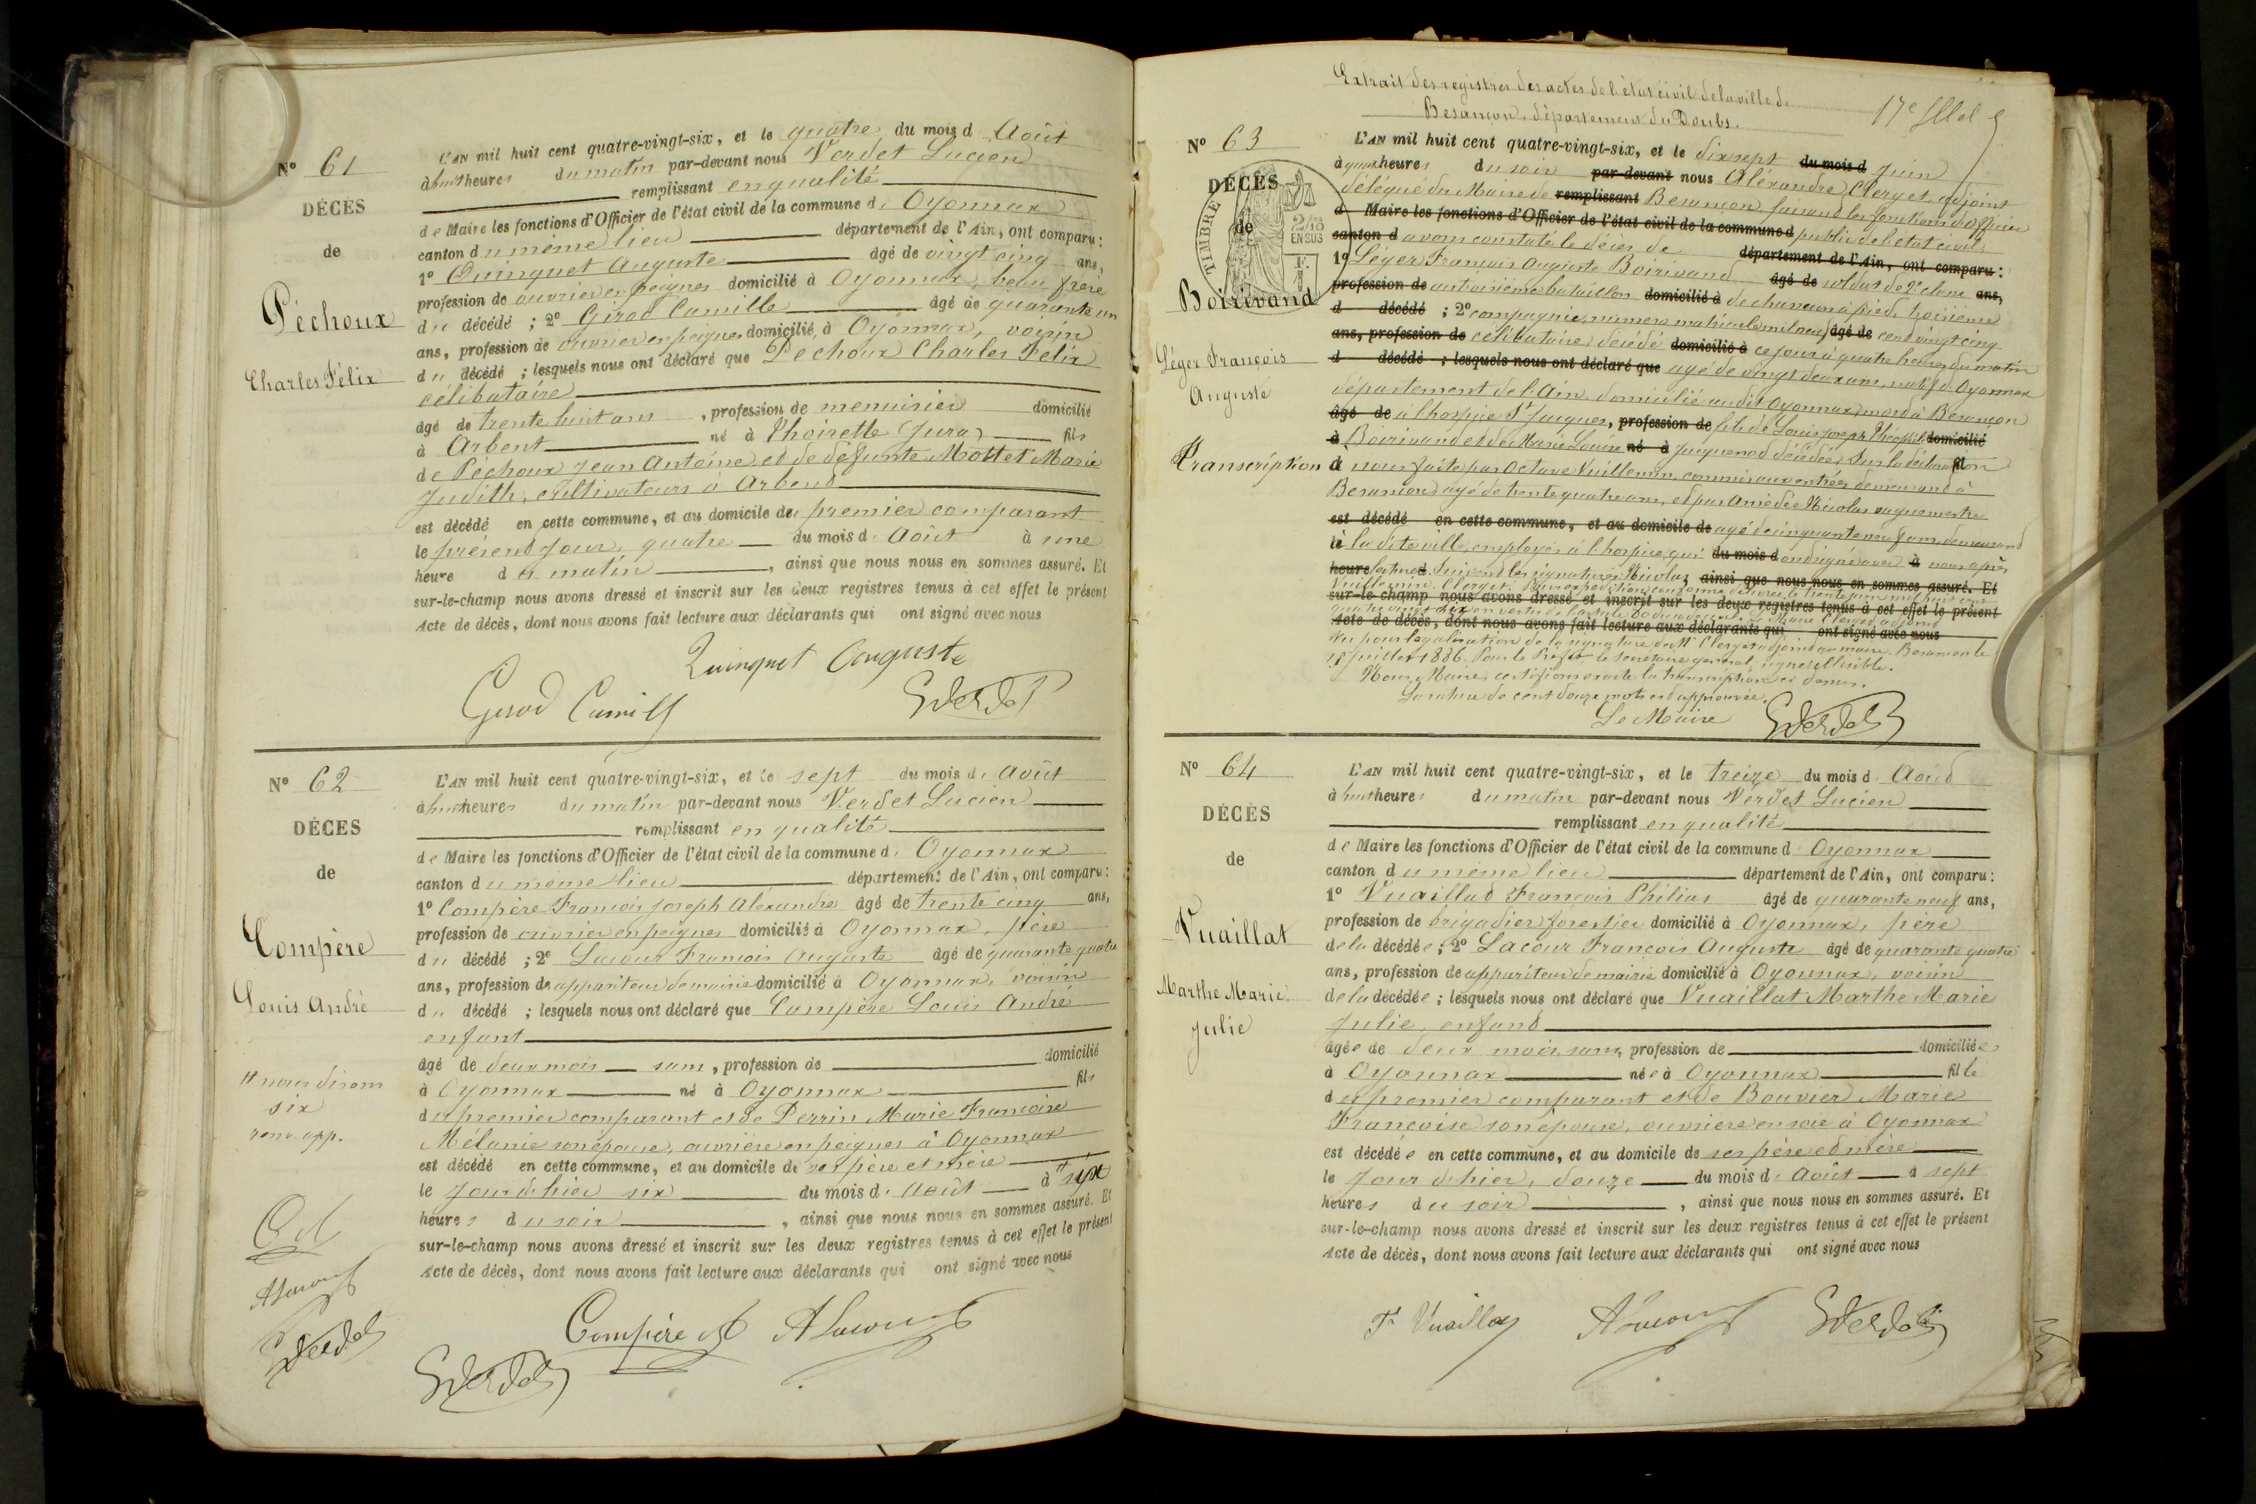 Nº 61
DÉCES
de
Péchoux
Charles Félix
L'AN mil huit cent quatre-vingt-six, et le quatre du mois d Août
à huit heures du matin par-devant nous Verdet Lucien
remplissant en qualité
de Maire les fonctions d'Officier de l'état civil de la commune d' Oyonnax
canton du même lieu département de l'Ain, ont comparu :
1º Quinquet Auguste âgé de vingt cinq ans,
profession de ouvrier en peignes domicilié à Oyonnax, beau frère
du décédé ; 2º Girod Camille âgé de quarante un
ans, profession de ouvrier en peignes domicilié à Oyonnax, voisin
du décédé ; lesquels nous ont déclaré que Pechoux Charles Félix
célibataire
âgé de trente huit ans, profession de menuisier domicilié
à Arbent né à Thoirette Jura fils
de Péchoux Jean Antoine et de défunte Mottet Marie
Judith, cultivateurs à Arbent
est décédé en cette commune, et au domicile du premier comparant
le présent jour, quatre du mois d' Août à une
heure du matin, ainsi que nous nous en sommes assuré. Et
sur-le-champ nous avons dressé et inscrit sur les deux registres tenus à cet effet le présent
Acte de décès, dont nous avons fait lecture aux déclarants qui ont signé avec nous
Quinquet Auguste
Girod Camille
Verdet
Nº 62
DÉCES
de
Compère
Louis André
# nous disons
six
renv. app.
L'AN mil huit cent quatre-vingt-six, et le sept du mois d' Août
à huit heures du matin par-devant nous Verdet Lucien
remplissant en qualité
de Maire les fonctions d'Officier de l'état civil de la commune d' Oyonnax
canton du même lieu département de l'Ain, ont comparu :
1º Compère François Joseph Alexandre âgé de trente cinq ans,
profession de ouvrier en peignes domicilié à Oyonnax, père
du décédé ; 2º Lacour François Auguste âgé de quarante quatre
ans, profession de appariteur de mairie domicilié à Oyonnax, voisin
du décédé ; lesquels nous ont déclaré que Compère Louis André
enfant
âgé de deux mois sans, profession de domicilié
à Oyonnax né à Oyonnax fils
du premier comparant et de Perrin Marie Françoise
Mélanie son épouse, ouvrière en peignes à Oyonnax
est décédé en cette commune, et au domicile de ses père et mère
le jour d'hier six du mois d' Août à # sept
heures du soir, ainsi que nous nous en sommes assuré. Et
sur-le-champ nous avons dressé et inscrit sur les deux registres tenus à cet effet le présent
Acte de décès, dont nous avons fait lecture aux déclarants qui ont signé avec nous
Compère A Lacour
Verdet
Extrait des registres des actes de l'état civil de la ville de
Besançon, département du Doubs.
Nº 63
DÉCES
de
TIMBRE
2/10
EN SUS
Boirivand
Léger François
Auguste
Transcription
L'AN mil huit cent quatre-vingt-six, et le dix sept du mois d Juin
heures du soir par-devant nous Aléxandre Clerget, adjoint
délégué du Maire de remplissant Besançon faisant les fonctions d'officier
d Maire les fonctions d'Officier de l'état civil de la commune d public de l'état civil
canton d avons constaté le décès de département de l'Ain, ont comparu :
1º Léger François Auguste Boirivand âgé de soldat de 2e classe ans,
profession de au troisième bataillon domicilié à de chasseurs à pied, troisième
d décédé ; 2º compagnie, numéro matricule âgé de cent vingt cinq
ans, profession de célibataire, décédé domicilié à ce jour à quatre heures du matin
d décédé ; lesquels nous ont déclaré que agé de vingt deux ans, natif d'Oyonnax
département de l'Ain, domicilié au dit Oyonnax, mort à Besançon
âgé de à l'hospice St Jacques, profession de fils de Louis Joseph Théophile domicilié
à Boirivand et de Marie Louise né à Juquenod décédée. Sur la déclaration fil
d à nous faite par Octave Vuillemin, commis aux entrées demeurant à
Besançon, agé de trente quatre ans, et par Amédée Nicolas vaguemestre
est décédé en cette commune, et au domicile de agé de cinquante neuf ans, demeurant
le la dite ville, employés à l'hospice, qui du mois d ont signé avec à nous après
heure lecture d. Suivent les signatures Nicolas ainsi que nous nous en sommes assuré. Et
sur-le-champ nous avons dressé et inscrit sur les deux registres tenus à cet effet le présent
Acte de décès, dont nous avons fait lecture aux déclarants qui ont signé avec nous
Vu pour légalisation de la signature de Mr Clerget adjoint au maire. Besançon le
Juillet 1886. Pour le Préfet le secrétaire général, signé illisible.
Nous, Maire, certifions exacte la transcription ci dessus.
La rature de cent douze mots est approuvée.
Le Maire Verdet
Nº 64
DÉCES
de
Vuaillat
Marthe Marie
Julie
L'AN mil huit cent quatre-vingt-six, et le treize du mois d' Août
à huit heures du matin par-devant nous Verdet Lucien
remplissant en qualité
de Maire les fonctions d'Officier de l'état civil de la commune d Oyonnax
canton du même lieu département de l'Ain, ont comparu :
1º Vuaillat François Philias âgé de quarante neuf ans,
profession de brigadier forestier domicilié à Oyonnax, père
de la décédée ; 2º Lacour François Auguste âgé de quarante quatre
ans, profession de appariteur de mairie domicilié à Oyonnax, voisin
de la décédée ; lesquels nous ont déclaré que Vuaillat Marthe Marie
Julie, enfant
âgée de deux mois, sans, profession de domiciliée
à Oyonnax née à Oyonnax fille
du premier comparant et de Bouvier Marie
Françoise son épouse, ouvrière en soie à Oyonnax
est décédée en cette commune, et au domicile de ses père et mère
le jour d'hier, douze du mois d' Août à sept
heures du soir, ainsi que nous nous en sommes assuré. Et
sur-le-champ nous avons dressé et inscrit sur les deux registres tenus à cet effet le présent
Acte de décès, dont nous avons fait lecture aux déclarants qui ont signé avec nous
Fs Vuaillat A Lacour Verdet